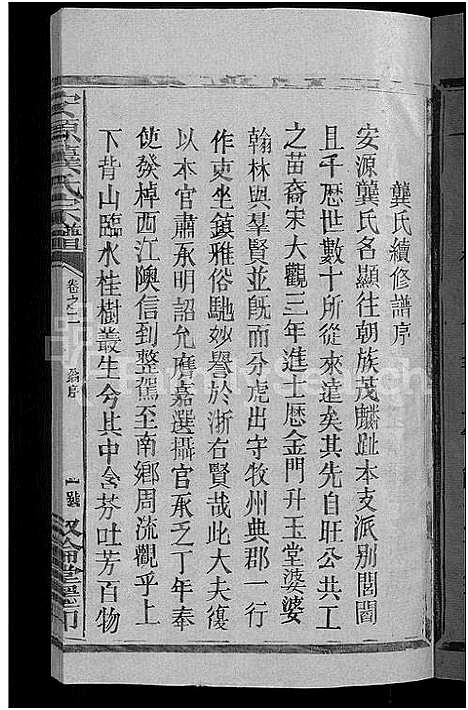 龔氏續修譜序
安源龔氏名顯往朝族茂麟趾本支派別閥閱
且千歷世數十所從來遠矣其先自旺公共工
之苗裔宋大觀三年進士歷金門升玉堂婆娑
翰林與羣賢並既而分虎出守牧州典郡一行
作吏坐鎮雅俗馳妙譽於浙右賢哉此大夫復
以本官肅承明詔允膺嘉選攝官承乏丁年奉
使發棹西江隩信到整駕至南鄉周流觀乎上
下背山臨水桂樹叢生兮其中含芬吐芳百物
安源龔氏宗譜
卷之二
序
一